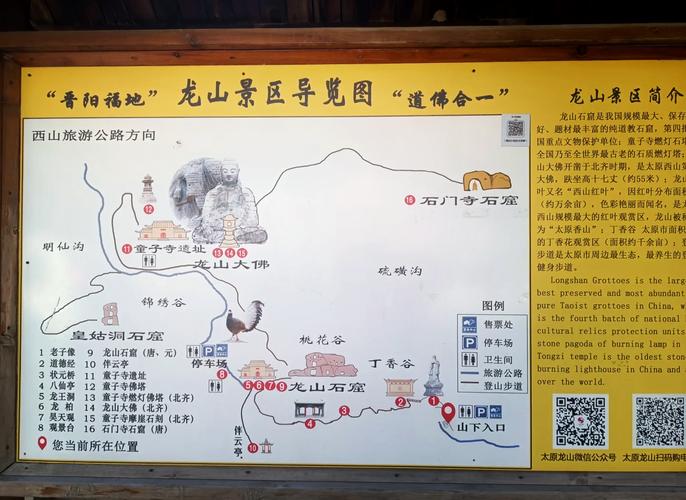 “晋阳福地” 龙山景区导览图 “道佛合一”
西山旅游公路方向
12
石门寺石窟
16
明仙沟
11 童子寺遗址
13 14 15
龙山大佛
硫磺沟
锦绣谷
皇姑洞石窟
桃花谷
丁香谷
停车场
8
5 6 7 9 龙山石窟
4
3
2
1
伴云亭
10
山下入口
图例
售票处
停车场
卫生间
旅游公路
登山步道
P 停车场
1 老子像 9 龙山石窟（唐、元）
2 道德经 10 伴云亭
3 状元桥 11 童子寺遗址
4 八仙亭 12 童子寺佛塔
5 龙王洞 13 童子寺燃灯佛塔（北齐）
6 龙柏 14 龙山大佛（北齐）
7 昊天观 15 童子寺摩崖石刻（北齐）
8 观景台 16 石门寺石窟（唐）
您当前所在位置
龙山景区简介
龙山石窟是我国规模最大、保存
好、题材最丰富的纯道教石窟，第四批
国重点文物保护单位；童子寺燃灯石塔
全国乃至全世界最古老的石质燃灯塔；
山大佛开凿于北齐时期，是太原西山第
大佛，趺坐高十七丈（约55米）；龙山
叶又名“西山红叶”，因红叶分布面积
（约万余亩），色彩艳丽而闻名，是太
西山规模最大的红叶观赏区，龙山被称
为“太原香山”；丁香谷 太原市面积
的丁香花观赏区（面积约千余亩）；登
步道是太原市周边最生态、最养生的登
健身步道。
Longshan Grottoes is the larg
best preserved and most abundant
pure Taoist grottoes in China, w
is the fourth batch of national
cultural relics protection units
stone pagoda of burning lamp in
Tongzi temple is the oldest stone
burning lighthouse in China and
over the world.
太原龙山微信公众号 太原龙山扫码购电